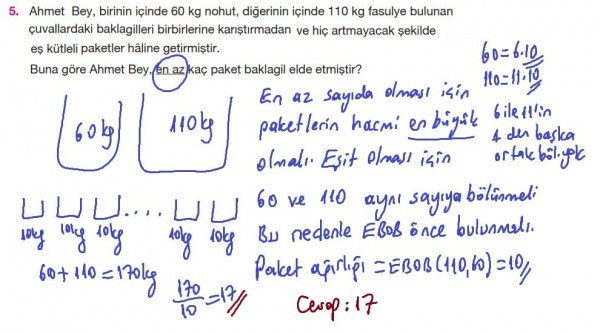 5. Ahmet Bey, birinin içinde 60 kg nohut, diğerinin içinde 110 kg fasulye bulunan
çuvallardaki baklagilleri birbirlerine karıştırmadan ve hiç artmayacak şekilde
eş kütleli paketler hâline getirmiştir.
Buna göre Ahmet Bey, en az kaç paket baklagil elde etmiştir?
60=6.10
110=11.10
6 ile 11'in
1 den başka
ortak böl. yok
60kg
110kg
En az sayıda olması için
paketlerin hacmi en büyük
olmalı. Eşit olması için
60 ve 110 aynı sayıya bölünmeli
Bu nedenle EBOB önce bulunmalı.
Paket ağırlığı = EBOB(110,60)=10
....
10kg 10kg 10kg 10kg 10kg
60+110=170kg
170/10=17
Cevap: 17